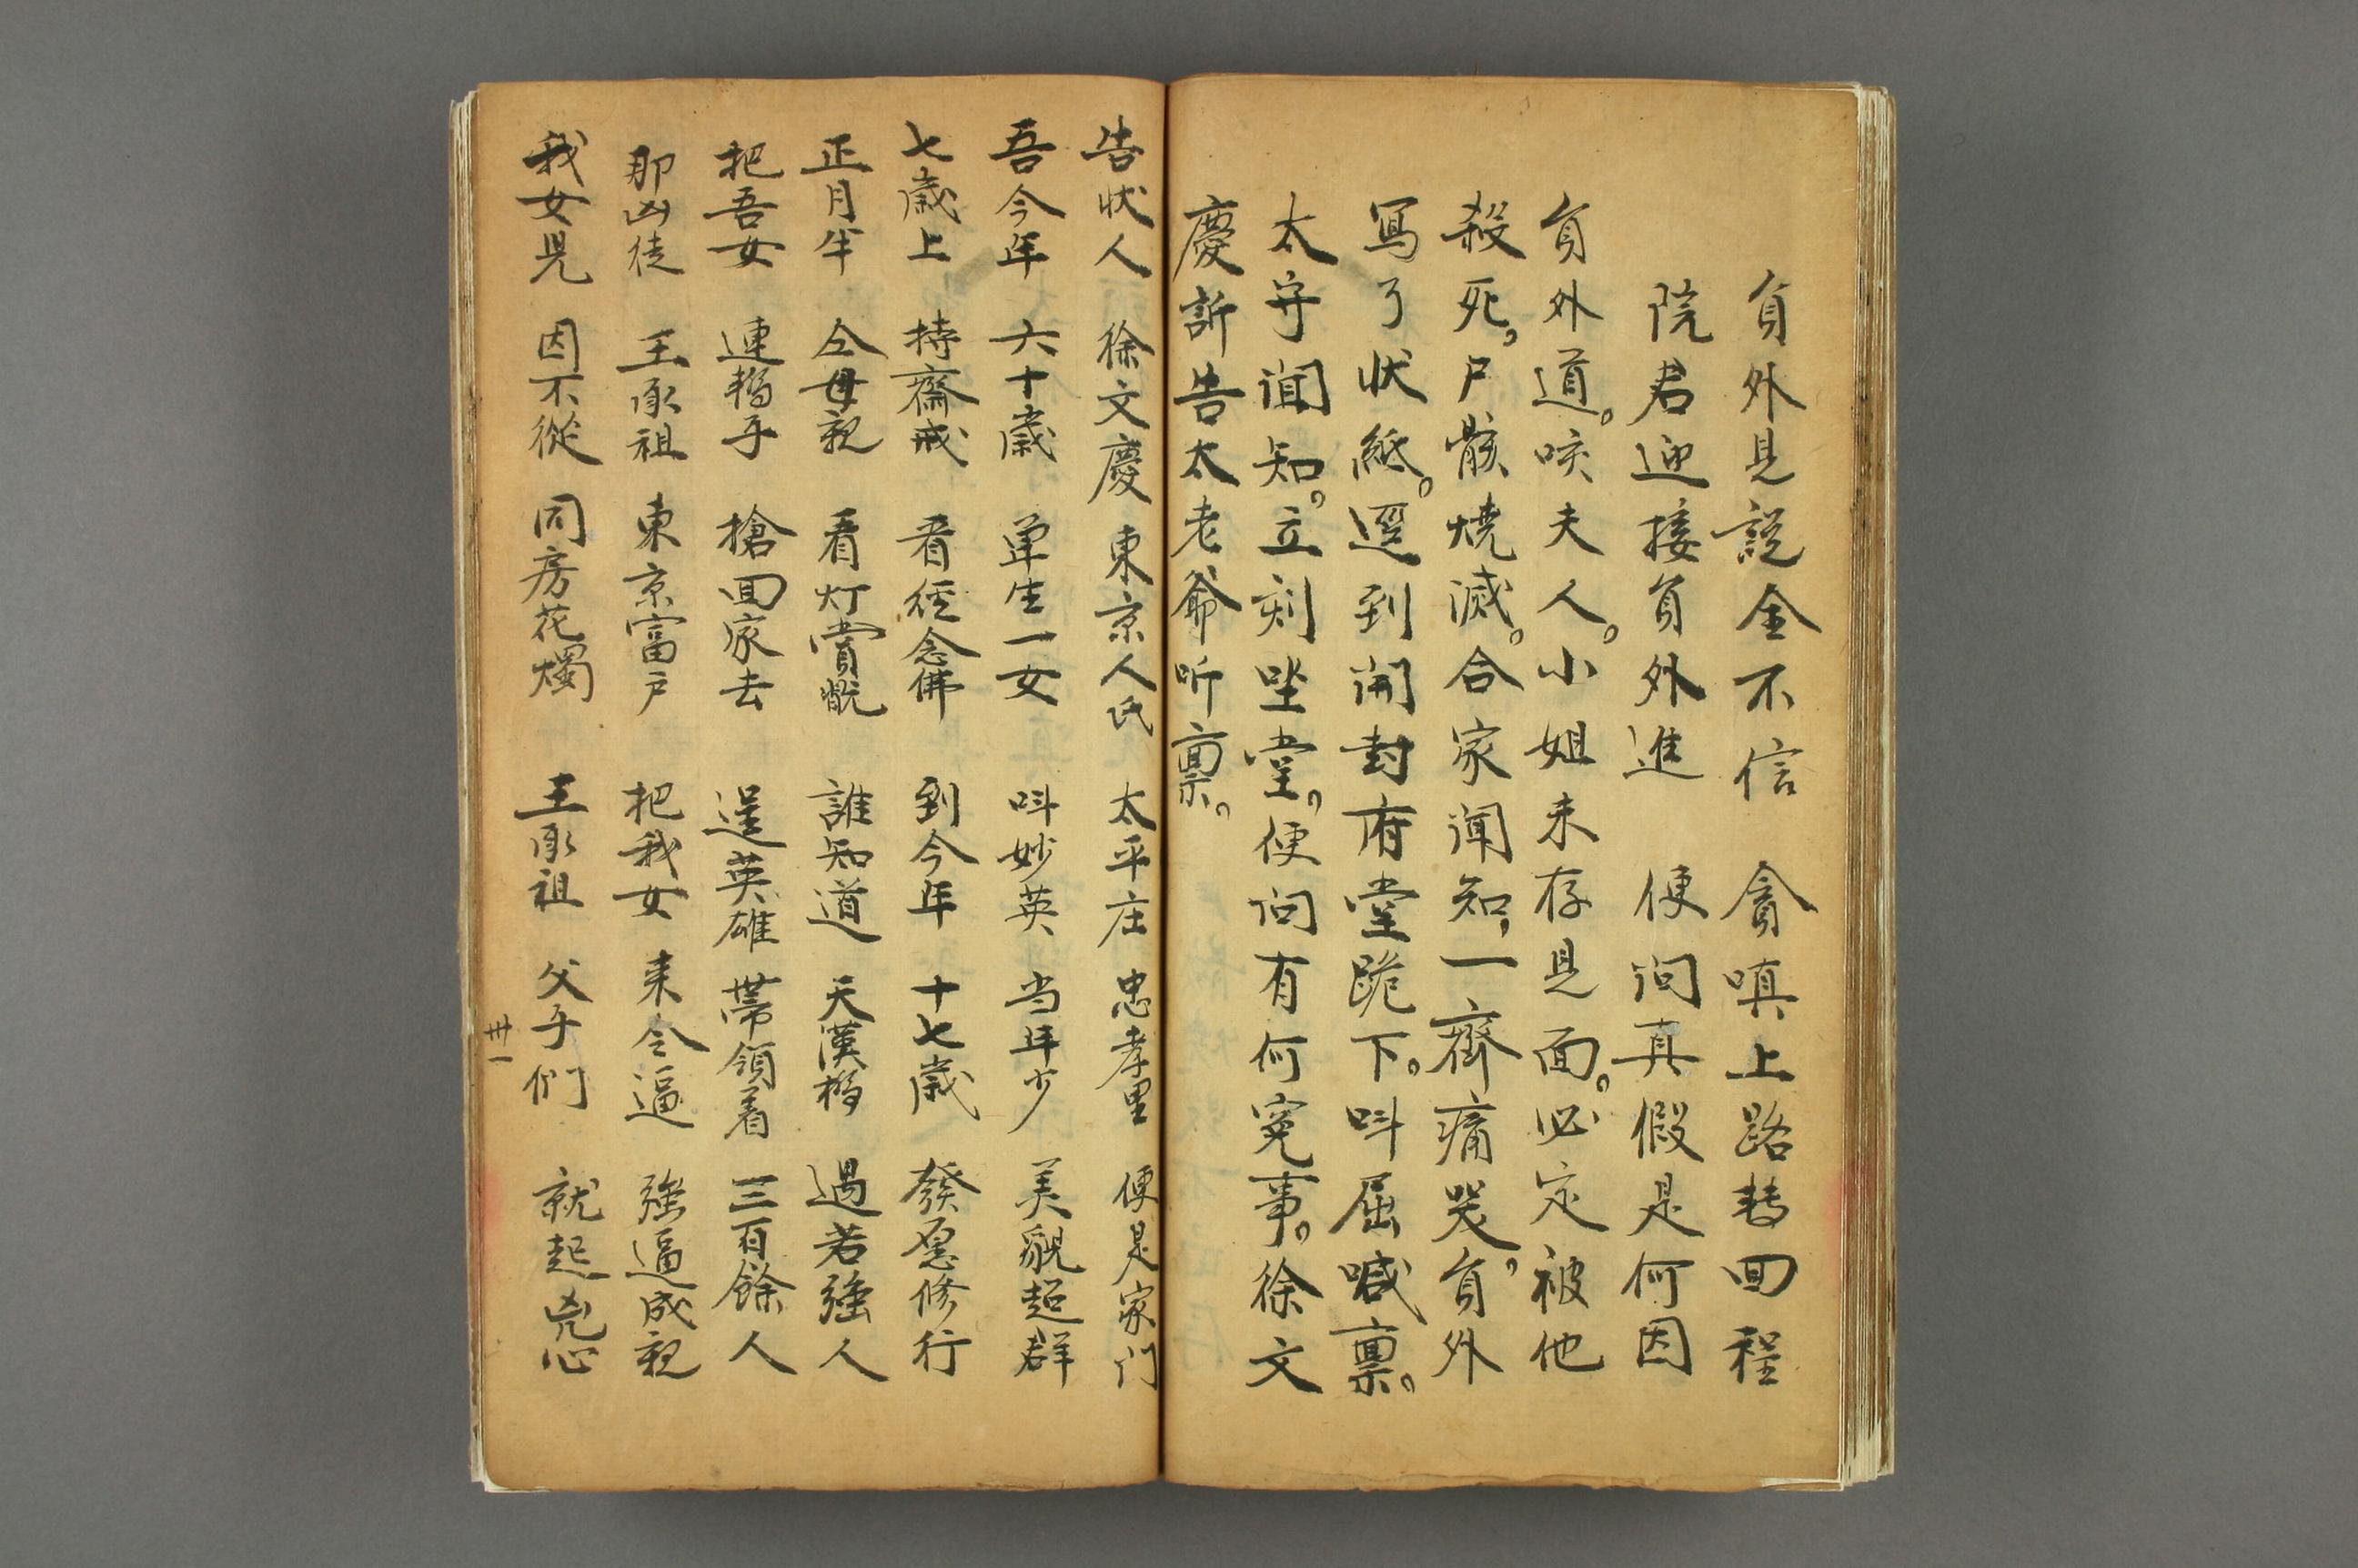 員外見說全不信　貪嗔上路轉回程
院君迎接員外進　便问真假是何因
員外道。唉夫人。小姐未存見面。必定被他
殺死，尸骸燒滅。合家闻知，一齊痛哭，員外
寫了狀紙。逕到開封府堂跪下。呌屈喊禀。
太守闻知，立刻坐堂，便问有何冤事。徐文
慶訴告太老爺听禀。
告狀人　徐文慶　東京人氏　太平庄　忠孝里　便是家门
吾今年　六十歲　單生一女　呌妙英　当年少　美貌超群
七歲上　持齋戒　看经念佛　到今年　十七歲　發愿修行
正月半　仝母親　看灯賞翫　誰知道　天漢橋　過若強人
把吾女　連轎子　搶回家去　逞英雄　帶領着　三百餘人
那凶徒　王承祖　東京富戶　把我女　来仝逼　強逼成親
我女児　因不從　同房花燭　王承祖　父子们　就起兇心
卅一